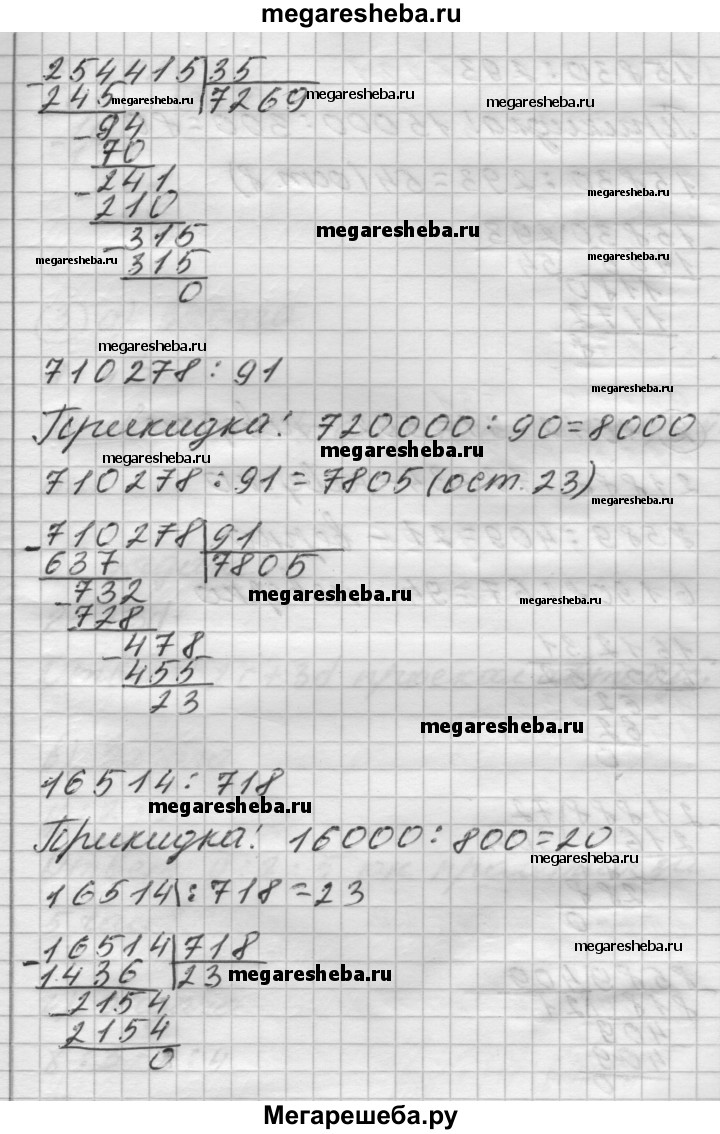 megaresheba.ru
254415 | 35
245 megaresheba.ru 7269 megaresheba.ru megaresheba.ru
94
70
241
megaresheba.ru
210
megaresheba.ru
315
megaresheba.ru 315 megaresheba.ru
0
megaresheba.ru
710278 : 91
megaresheba.ru
Прикидка! 720000 : 90 = 8000
megaresheba.ru megaresheba.ru
710278 : 91 = 7805 (ост. 23)
megaresheba.ru
710278 | 91
637 7805
732 megaresheba.ru megaresheba.ru
728
478
455
23
megaresheba.ru
16514 : 718
megaresheba.ru
Прикидка! 16000 : 800 = 20
megaresheba.ru
16514 : 718 = 23
16514 | 718 megaresheba.ru
1436 23 megaresheba.ru
2154
2154
0
Мегарешеба.ру